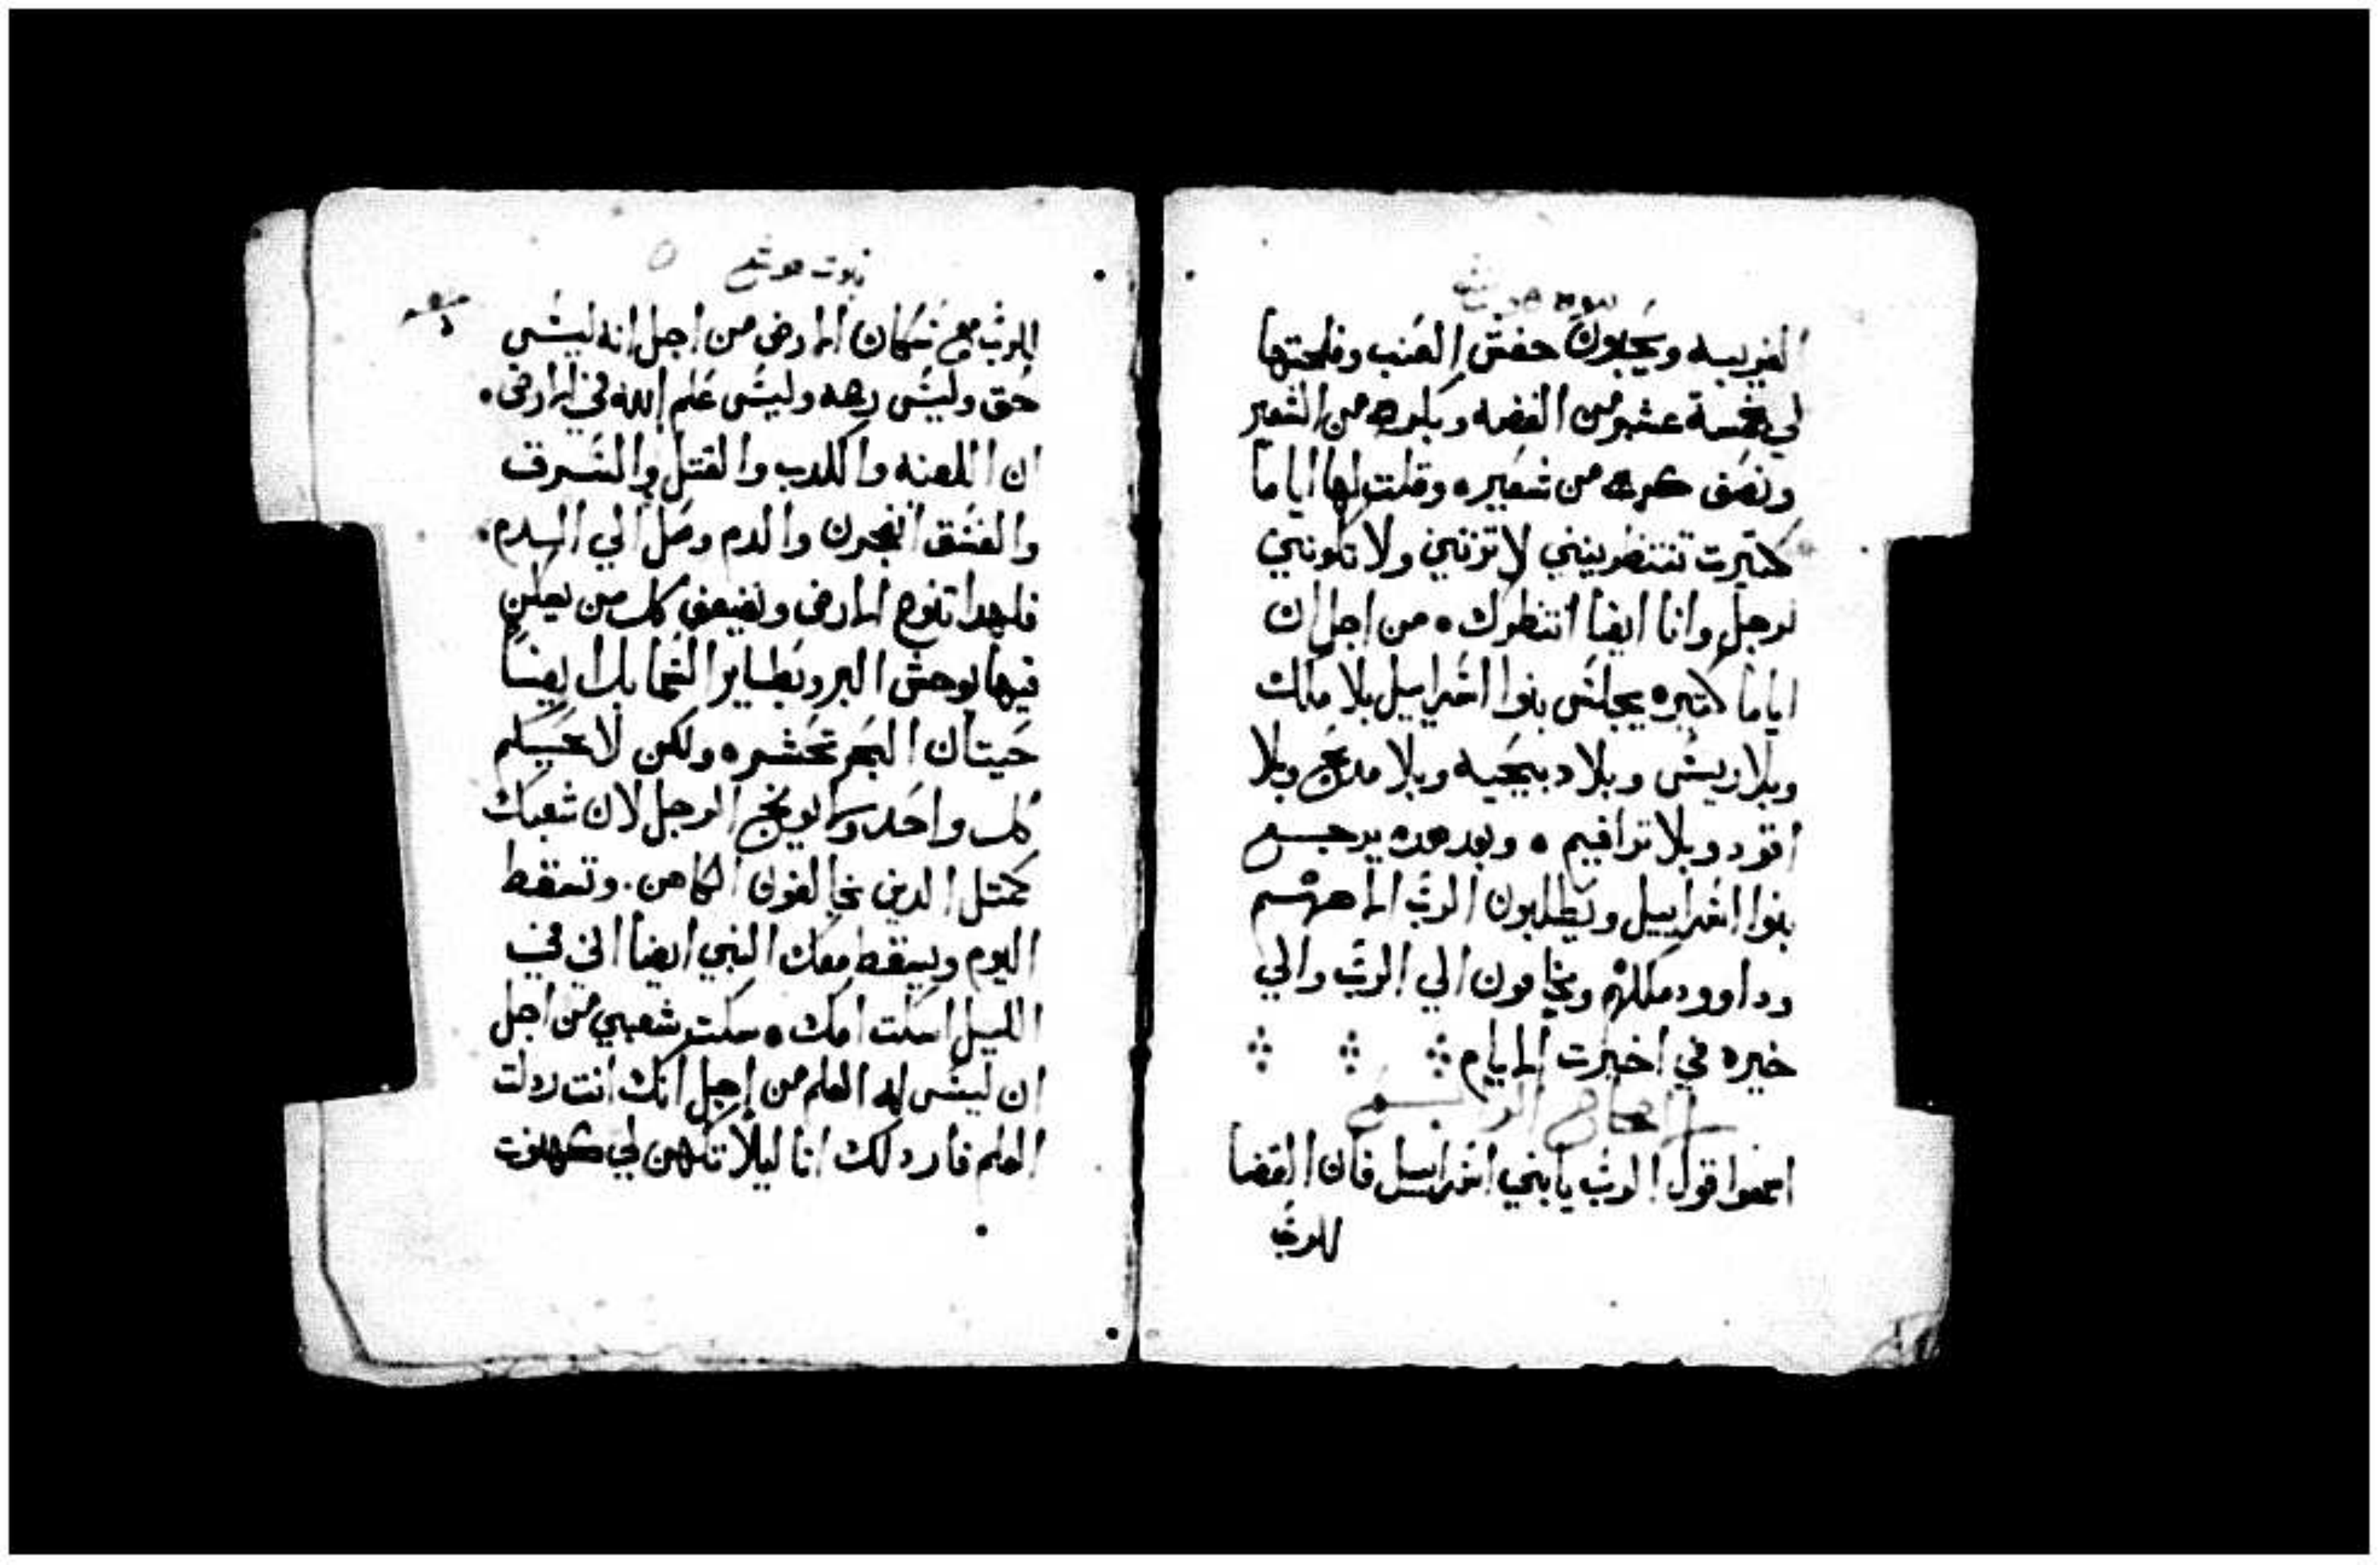 نبوة هوشع
الغريبه ويحبون حفش العنب وفلحتها
لي بخمسة عشر من الفضه وبكره من الشعير
ونصف كره من شعير ٥ وقلت لها اياما
كتيرت تنتضريني لا تزني ولا تكوني
لرجل وانا ايضا انتظرك ٥ من اجل ان
اياما كتيره يجلس بنوا اسراييل بلا ملك
وبلا ريس وبلا دبيحيه وبلا مدبح وبلا
افود وبلا ترافيم ٥ وبعد هده يرجع
بنوا اسراييل ويطلبون الرب الاههم
وداوود ملكهم ويخافون الي الرب والي
خيره في اخيرت الايام
الاصحاح الرابع
اسمعوا قول الرب يا بني اسراييل فان القضا
للرب
نبوت هوشع
للرب مع سكان الارض من اجل انه ليس
حق وليس رحمه وليس علم الله في الارض.
ان اللعنه والكدب والقتل والسرق
والفسق انفجرن والدم وصل الي الدم.
فلهدا تنوح الارض ويضعف كل من يسكن
فيها بوحش البر وبطاير السما بل ايضا
حيتان البحر تحشر ٥ ولكن لا يحكم
كل واحد ولا يوبخ الرجل لان شعبك
كمتل الدين يخالفون الكاهن. وتسقط
اليوم ويسقط معك النبي ايضا في
الليل اسكت امك ٥ سكت شعبي من اجل
ان ليس له العلم من اجل انك انت ردلت
العلم فاردلك انا ليلا تكهن لي كهنوت